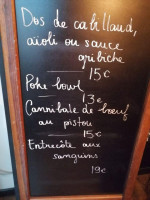 Dos de cabillaud,
aïoli ou sauce
gribiche
15€
Poke bowl
13€
Cannibale de boeuf
au pistou
15€
Entrecôte aux
sanguins
19€